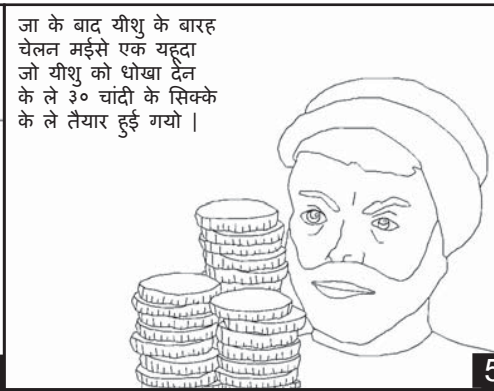 जा के बाद यीशु के बारह
चेलन मईसे एक यहूदा
जो यीशु को धोखा देंन
के ले ३० चांदी के सिक्के
के ले तैयार हुई गयो |
5